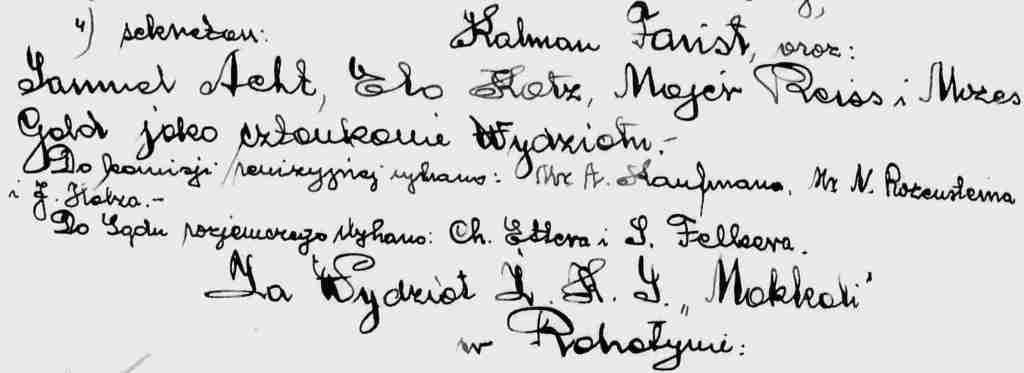 4) sekretarz: Kalman Faust, oraz:
Samuel Acht, Elo Katz, Majer Reiss i Mozes
Gold jako członkowie Wydziału.-
Do komisji rewizyjnej wybrano: Mr A. Kaufmana, Mr N. Rozensteina
i J. Katza.-
Do Sądu rozjemczego wybrano: Ch. Ettera i S. Felkera.
Za Wydział Ż. K. S. "Makkabi"
w Rohatynie: